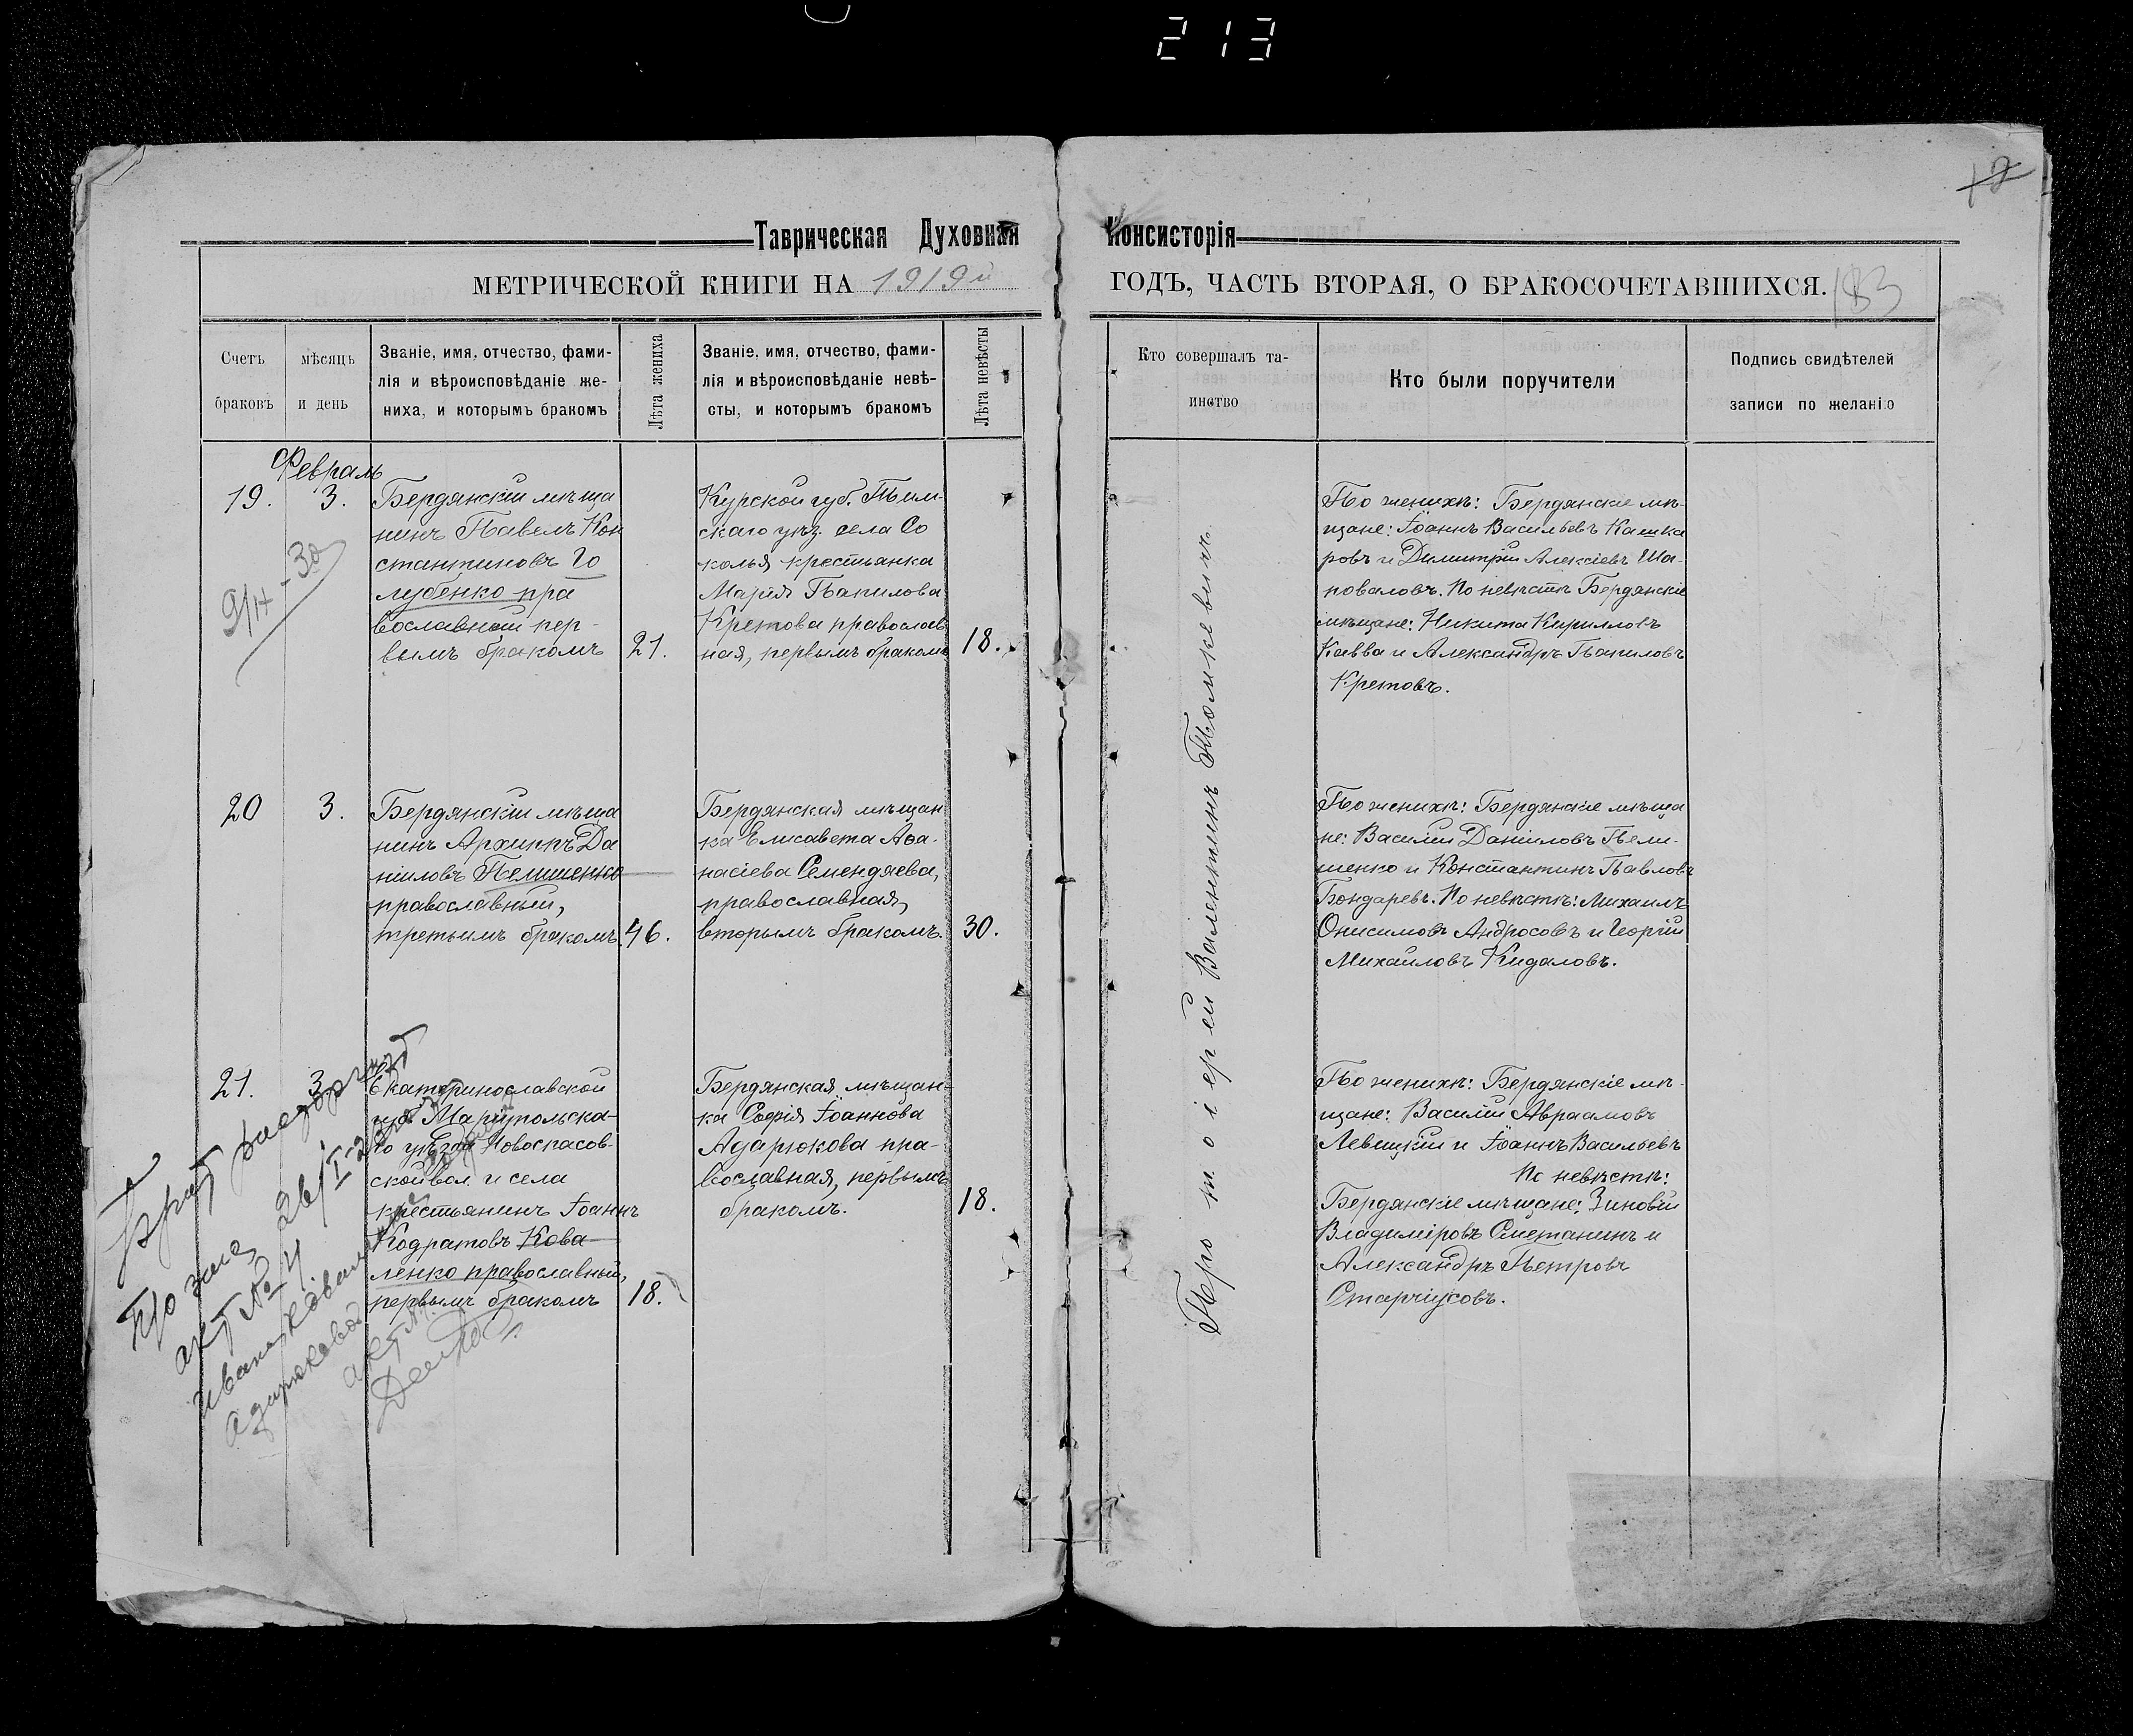 213
Таврическая Духовная Консисторія
МЕТРИЧЕСКОЙ КНИГИ НА 1919й ГОДЪ, ЧАСТЬ ВТОРАЯ, О БРАКОСОЧЕТАВШИХСЯ.
183
Счетъ браковъ
мѣсяцъ и день
Званіе, имя, отчество, фами-
лія и вѣроисповѣданіе же-
ниха, и которымъ бракомъ
Лѣта жениха
Званіе, имя, отчество, фами-
лія и вѣроисповѣданіе невѣ-
сты, и которымъ бракомъ
Лѣта невѣсты
Кто совершалъ та-
инство
Кто были поручители
Подпись свидѣтелей
записи по желанію
Февраль
19. 3.
Бердянскій мѣща
нинъ Павелъ Кон
стантиновъ Го
лубенко пра
вославный пер-
вымъ бракомъ
21.
Курской губ. Тим-
скаго уѣз. села Со
колья крестьанка
Марія
Кретова православ
ная, первымъ бракомъ
18.
По женихѣ: Бердянскіе мѣ-
щане: Іоаннъ Васильевъ Кашка
ровъ и Димитрій Алексіевъ Ша-
поваловъ. По невѣстѣ Бердянскіе
мѣщане: Никита Кирилловъ
Кавва и Александръ
Кретовъ.
20 3.
Бердянскій мѣща
нинъ Архиппъ Да
ніиловъ Пелишенко
православный,
третьимъ бракомъ
46.
Бердянская мѣщан
ка Елисавета Аѳа-
насіева Семендяева,
православная,
вторымъ бракомъ.
30.
По женихѣ: Бердянскіе мѣща
не: Василій Даніиловъ Пели-
шенко и Константинъ Павловъ
Бондаревъ. По невѣстѣ: Михаилъ
Онисимовъ Андросовъ и Георгій
Михайловъ Кидаловъ.
21. 3
Екатеринославской
губ Маріупольска-
го уѣзда Новоспасов-
ской вол. и села
крестьянинъ Іоаннъ
Кодратовъ Кова-
ленко православный,
первымъ бракомъ
18.
Бердянская мѣщан-
ка Софія Іоаннова
Адарюкова пра-
вославная, первымъ
бракомъ.
18.
По женихѣ: Бердянскіе мѣ-
щане: Василій Авраамовъ
Левицкій и Іоаннъ Васильевъ
По невѣстѣ:
Бердянскіе мѣщане: Зиновій
Владиміровъ Сметанинъ и
Александръ Петровъ
Старчіусовъ.
Протоіерей Валентинъ Томкевичъ
акт № 4